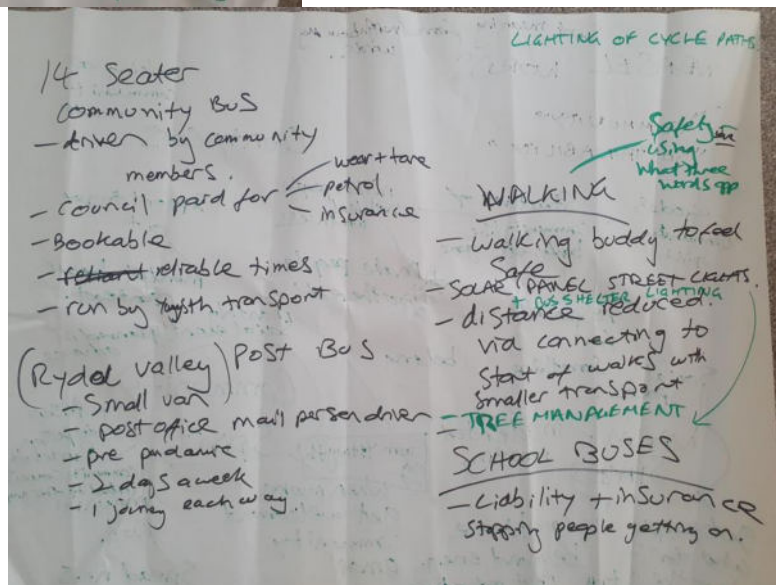 LIGHTING OF CYCLE PATHS
14 Seater
Community Bus
- driven by community
members.
- Council paid for
wear + tare
- petrol
- insurance
- Bookable
- reliable times
- run by transport
(Rydal Valley) Post Bus
- Small van
- post office mail person driver
- pre pandamic
- 2 days a week
- 1 jorney each way
Safety
using
what three
words app
WALKING
- walking buddy to feel
Safe
- SOLAR PANEL STREET LIGHTS.
+ BUS SHELTER LIGHTING
- distance reduced.
via connecting to
start of walks with
smaller transport
- TREE MANAGEMENT
SCHOOL BUSES
- Liability + insurance
stopping people getting on.